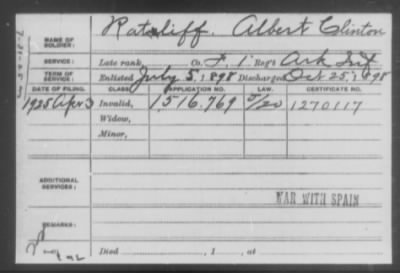 NAME OF SOLDIER: Ratcliff, Albert Clinton
SERVICE: Late rank, Co. F, 1 Reg't Ark Inf
TERM OF SERVICE: Enlisted July 5, 1898 Discharged Oct 25, 1898
DATE OF FILING. CLASS. APPLICATION NO. LAW. CERTIFICATE NO.
1925 Apr 3 Invalid, 1,516,769 5/20 1270117
Widow,
Minor,
ADDITIONAL SERVICES:
WAR WITH SPAIN
REMARKS:
Died , 1 , at
7-31-25